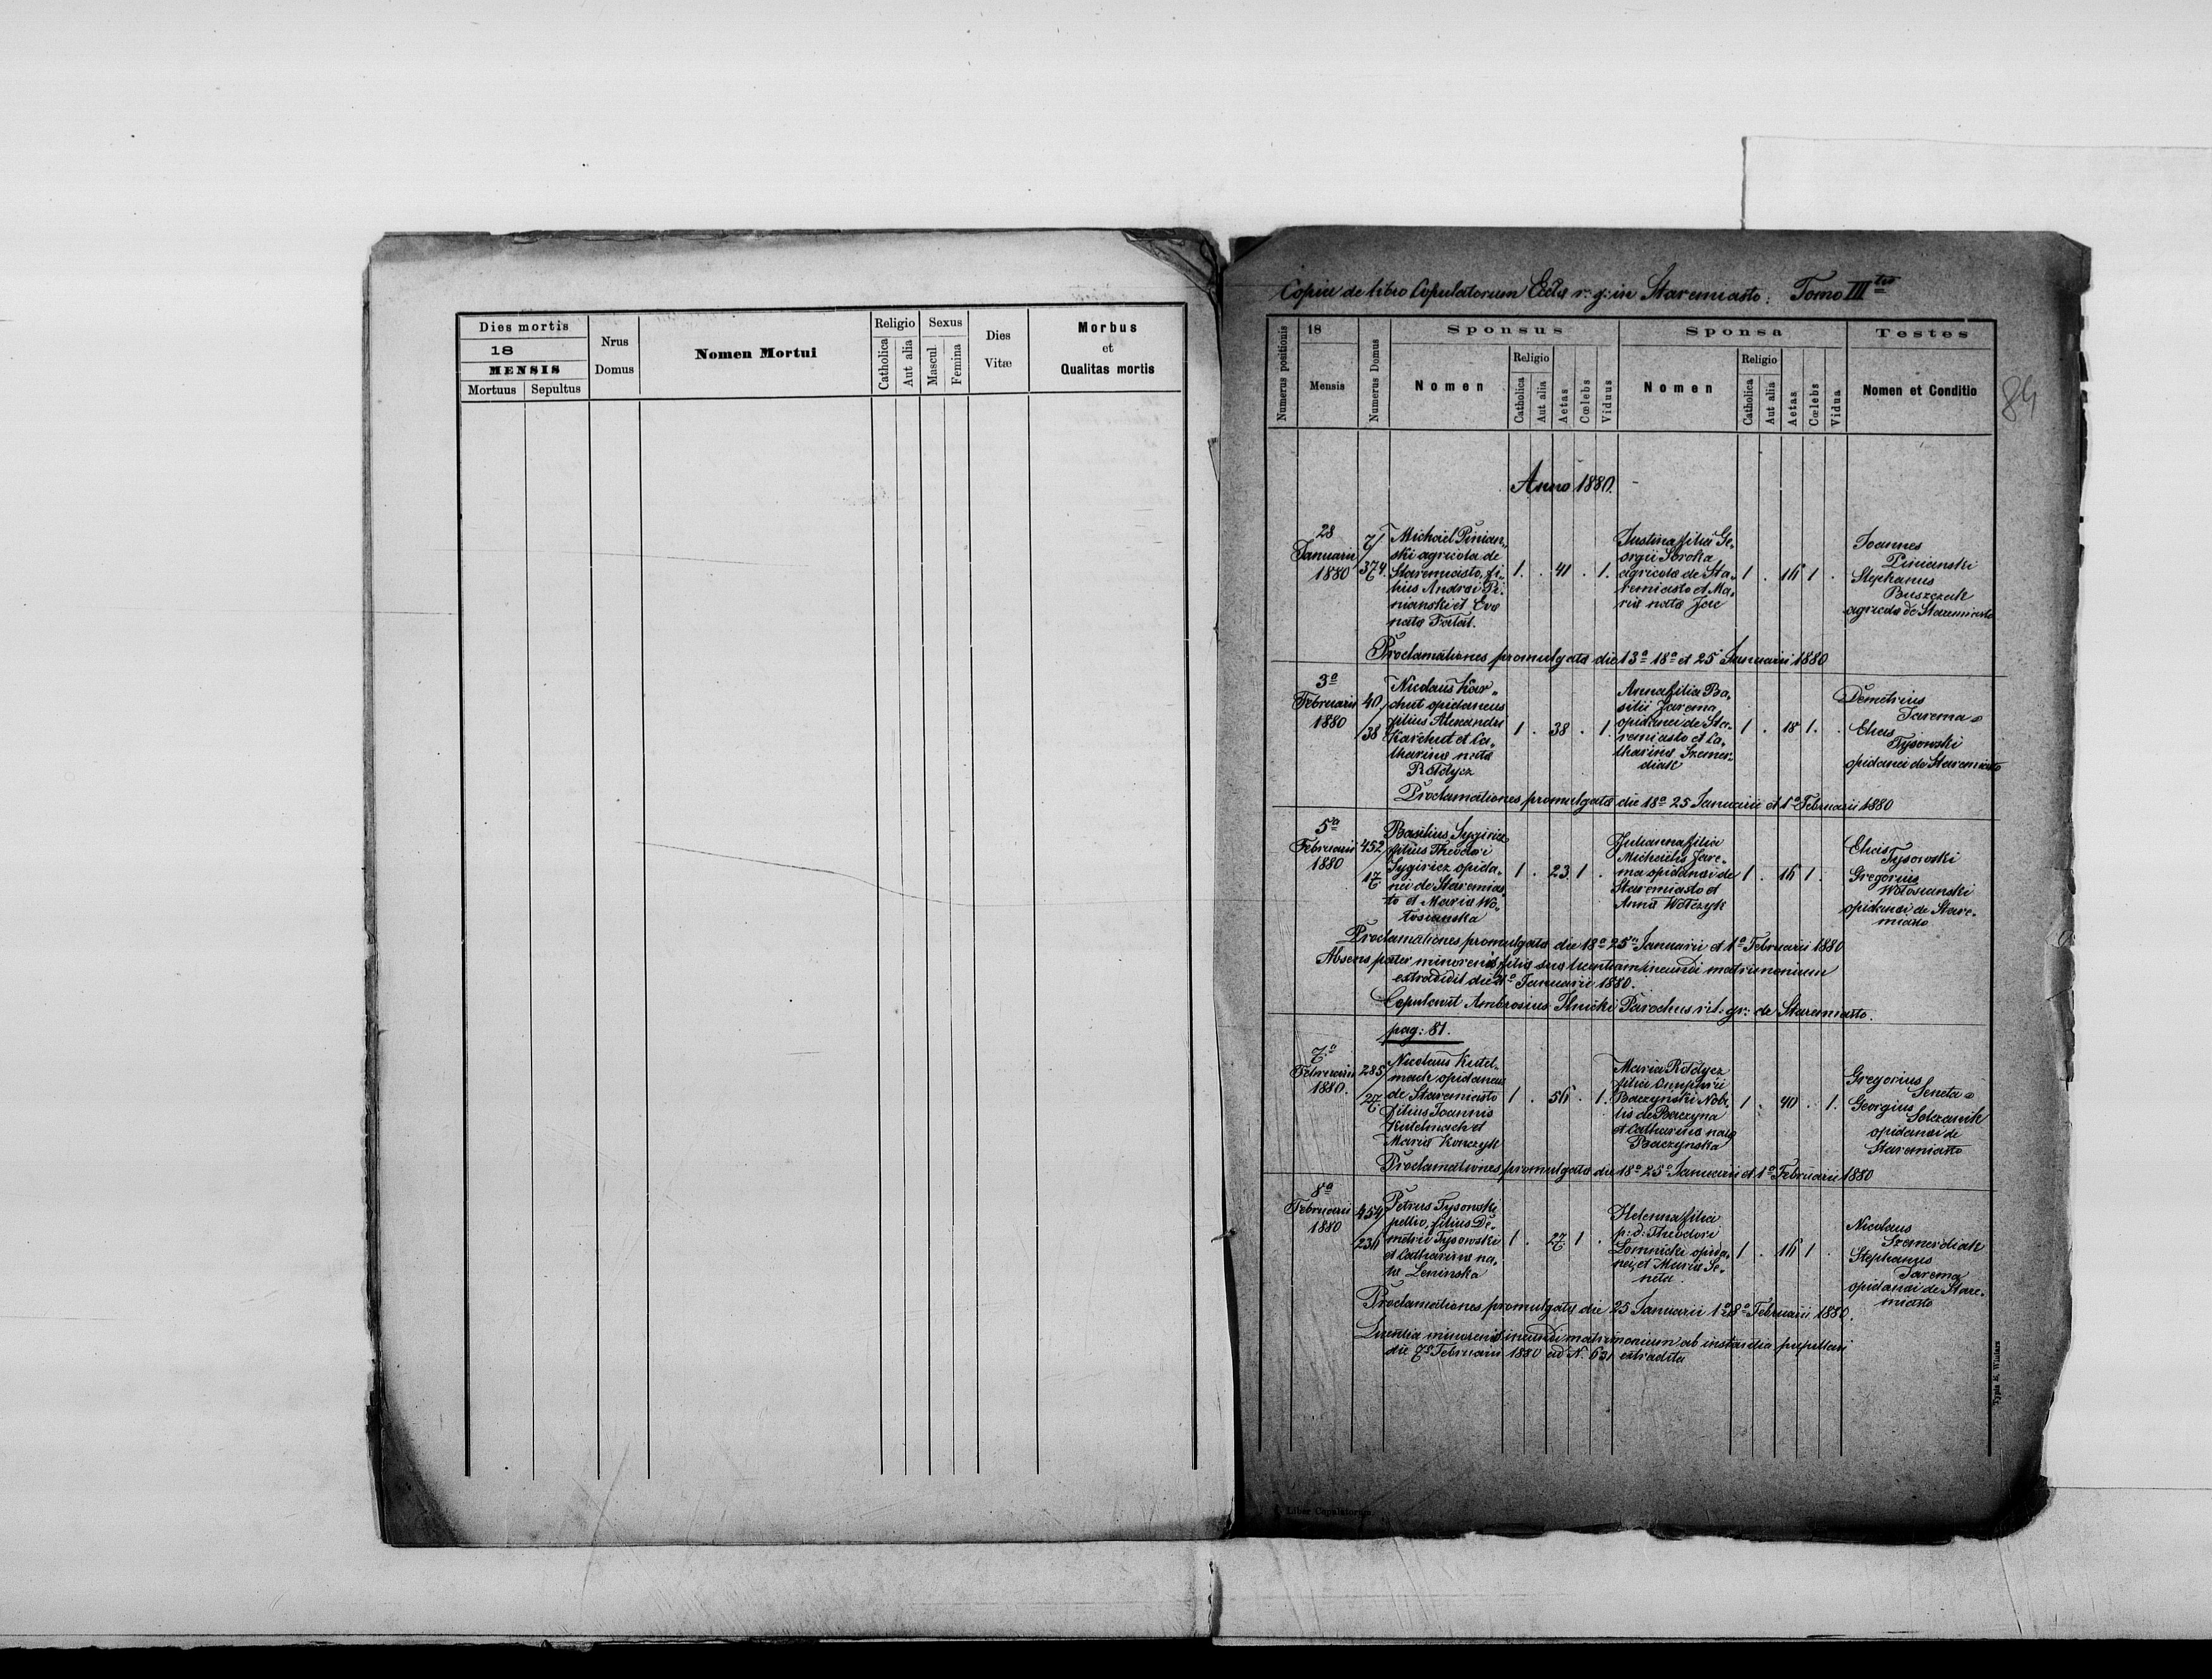 Dies mortis
18
MENSIS
Mortuus Sepultus
Nrus
Domus
Nomen Mortui
Religio
Catholica
Aut alia
Sexus
Mascul.
Femina
Dies
Vitæ
Morbus
et
Qualitas mortis
Copia de libro Copulatorum Eccla r. g. in Staremiasto. Tomo III tio
84
Numerus positionis
18
Mensis
Numerus Domus
Sponsus
Nomen
Religio
Catholica
Aut alia
Aetas
Cœlebs
Viduus
Sponsa
Nomen
Religio
Catholica
Aut alia
Aetas
Cœlebs
Vidua
Testes
Nomen et Conditio
Anno 1880.
28
Januarii
1880
7/
374.
Michael Pinian„
ski agricola de
Staremiasto, fi„
lius Andrei Pi„
nianski et Eva
nata Fatat.
1 . 41 . 1.
Justina filia Ge„
orgii Soroka
agricola de Sta„
remiasto et Ma„
ria nata Jac
1 . 16 1 .
Joannes
Pinianski
Stephanus
Buszczak
agricola de Staremiasto
Proclamationes promulgata die 13a 18a et 25 Januarii 1880
3a
Februarii
1880
40/
38
Nicolaus Kar„
chut opidaneus
filius Alexandri
Karchut et Ca„
tharina nata
Rotdycz
1 . 38 . 1.
Anna filia Ba„
silii Jarema
opidanei de Sta„
remiasto et Ca„
tharina Szemer„
diak
1 . 18 1 .
Demetrius
Jarema
Elias
Tysowski
opidanei de Staremiasto
Proclamationes promulgata die 18a 25 Januarii et 1a Februarii 1880
5a
Februarii
1880
452/
17
Basilius
filius Theodori
opida„
nei de Staremias
to et Maria Wo„
łosianska
1 . 23 1 .
Julianna filia
Michaelis Jare„
ma opidanei de
Staremiasto et
Anna Wołczyk
1 . 16 1 .
Elias
Tysowski
Gregorius
Wołosianski
opidanei de Stare„
miasto
Proclamationes promulgata die 18a 25a Januarii et 1a Februarii 1880
Absens pater minorenis filia sua licentiam ineundi matrimonium
extradidit die Januarii 1880.
Copulavit Ambrosius Ilnicki Parochus rit: gr: de Staremiasto.
pag: 81.
7a
Februarii
1880.
285/
27.
Nicolaus Kutel„
mach opidaneus
de Staremiasto
filius Joannis
Kutelmach et
Maria Konczyk
1 . 56 . 1.
Maria Rotdycz
filia Onuphrii
Baczynski Nobi„
lis de Baczyna
et Catharina nata
Baczynska
1 . 40 . 1.
Gregorius
Seneta
Georgius
Solczanik
opidanei de
Staremiasto
Proclamationes promulgata die 18a 25a Januarii et 1a Februarii 1880
8a
Februarii
1880
454/
236
Petrus Tysowski
pellio, filius De„
metrii Tysowski
et Catharina na„
ta Leninska
1 . 27 1 .
Helenna filia
p: d: Theodori
Łomnicki opida„
nei, et Maria Se„
neta.
1 . 16 1 .
Nicolaus
Szemerdiak
Stephanus
Jarema
opidanei de Stare„
miasto
Proclamationes promulgata die 25 Januarii 1a 8a Februarii 1880.
Licentia minorenis ineundi matrimonium ab instantia pupillari
die 7a Februarii 1880 ad N. 631 extradita
Liber Copulatorum
Typis E. Winiarz